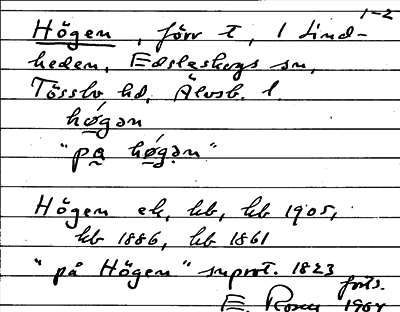 1-2
Högen, förr t, 1 Lind-
heden, Edsleskogs sn,
Tössbo hd, Älvsb. l.
hǿgən
"pa hǿgən"
Högen ek, kb, kb 1905,
kb 1886, kb 1861
"på Högen" snprot. 1823
forts.
E. Rosén 1968